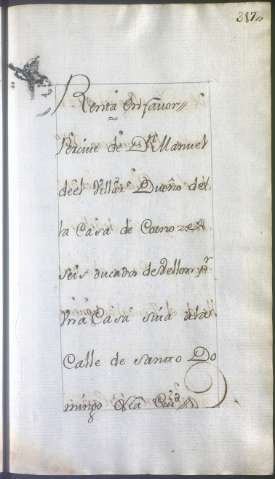 317
Renta en favor
Percive de D.n Manuel
del Villar Dueño de
la Casa de Cotro
seis ducados de vellon pr
una Casa sita a la
Calle de Santo Do
mingo de esta Ciud